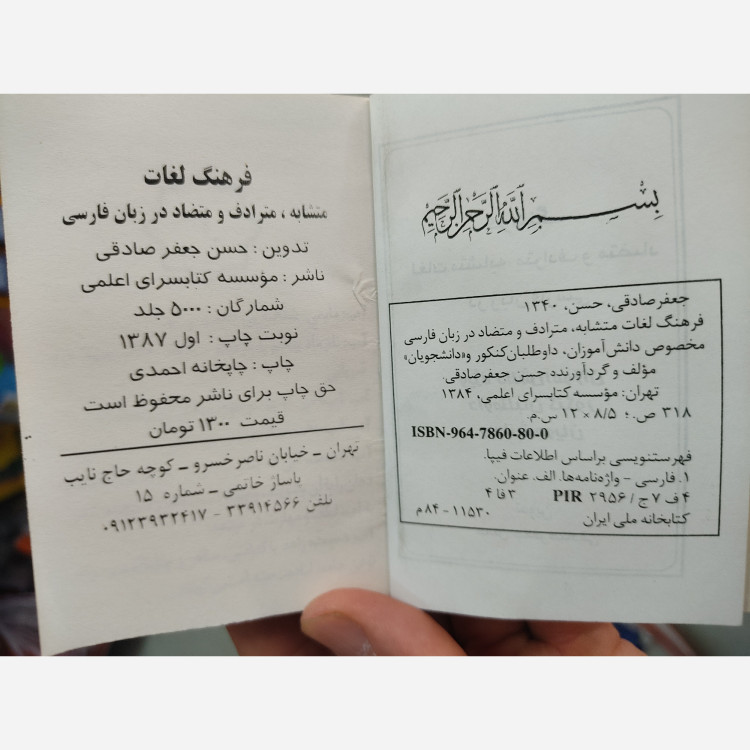 بسم الله الرحمن الرحیم
جعفرصادقی، حسن، ۱۳۴۰
فرهنگ لغات متشابه، مترادف و متضاد در زبان فارسی
مخصوص دانش‌آموزان، داوطلبان کنکور و «دانشجویان»
مؤلف و گردآورنده حسن جعفرصادقی.
تهران: مؤسسه کتابسرای اعلمی، ۱۳۸۴
۳۱۸ ص.؛ ۸/۵ × ۱۲ س.م.
ISBN-964-7860-80-0
فهرستنویسی براساس اطلاعات فیپا.
۱. فارسی - واژه‌نامه‌ها. الف. عنوان.
۴ ف ۷ ج / ۲۹۵۶ PIR ۳ فا ۴
کتابخانه ملی ایران ۱۱۵۳۰-۸۴ م
فرهنگ لغات
متشابه ، مترادف و متضاد در زبان فارسی
تدوین : حسن جعفر صادقی
ناشر : مؤسسه کتابسرای اعلمی
شمارگان : ۵۰۰۰ جلد
نوبت چاپ : اول ۱۳۸۷
چاپ : چاپخانه احمدی
حق چاپ برای ناشر محفوظ است
قیمت ۱۳۰۰ تومان
تهران ـ خیابان ناصرخسرو ـ کوچه حاج نایب
پاساژ خاتمی ـ شماره ۱۵
تلفن ۳۳۹۱۴۵۶۶ - ۰۹۱۲۳۹۳۲۴۱۷